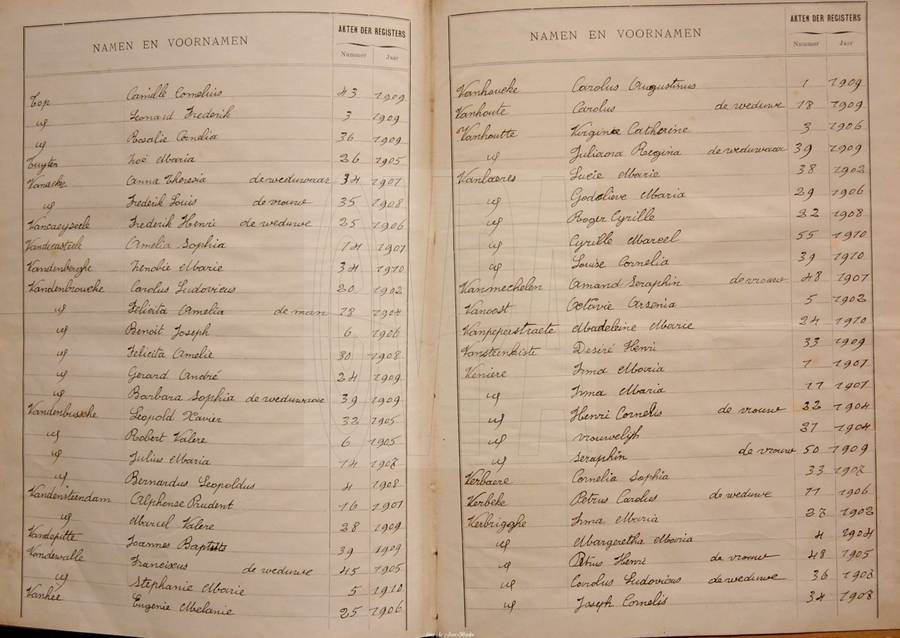 NAMEN EN VOORNAMEN AKTEN DER REGISTERS
Nummer Jaar
Top Camille Cornelius 43 1909
id Leonard Frederik 3 1909
id Rosalie Cordia 36 1909
Tuyter Zoë Maria 26 1905
Vanacke Anna Theresia de weduwaar 34 1907
id Frederik Louis de vrouw 35 1908
Vancaeyseele Frederik Henri de weduwe 25 1906
Vandecasteele Amelia Sophia 14 1907
Vandenberghe Zenobie Marie 34 1910
Vandenbroucke Carolus Ludovicus 20 1902
id Felicita Amelia de man 18 1904
id Benoit Joseph 6 1906
id Felicita Amelie 30 1908
id Gerard André 24 1909
id Barbara Sophia de weduwaar 39 1909
Vandenbussche Leopold Xavier 32 1905
id Robert Valere 6 1905
id Julius Maria 14 1907
id Bernardus Leopoldus 4 1908
Vandensteendam Alphonse Prudent 16 1901
id Marcel Valere 28 1909
Vandepitte Joannes Baptiste 39 1909
Vandewalle Franciscus de weduwe 45 1905
id Stephanie Marie 5 1910
Vanhee Eugenie Melanie 25 1906
NAMEN EN VOORNAMEN AKTEN DER REGISTERS
Nummer Jaar
Vanhoucke Carolus Augustinus 1 1909
Vanhoute Carolus de weduwe 18 1909
Vanhoutte Virginie Catherine 3 1906
id Juliana Regina de weduwaar 39 1909
Vanlaeres Lucie Marie 38 1902
id Godelieve Maria 29 1906
id Roger Cyrille 22 1908
id Cyrille Marcel 55 1910
id Louise Cornelia 39 1910
Vanmechelen Amand Seraphin de vrouw 48 1907
Vanoost Octavie Arsenia 5 1902
Vanpeperstraete Madeleine Marie 24 1910
Vansteenkiste Desiré Henri 33 1909
Veniere Irma Maria 7 1907
id Irma Maria 11 1907
id Henri Cornelis de vrouw 32 1904
id vrouwelijk 37 1904
id Seraphin de vrouw 50 1909
Verbaere Cornelia Sophia 33 1907
Verbeke Petrus Carolies de weduwe 11 1906
Verbrigghe Irma Maria 27 1902
id Margeretha Maria 4 1904
id Petrus Henri de vrouw 48 1905
id Carolus Ludovicus de weduwe 36 1907
id Joseph Cornelis 34 1908